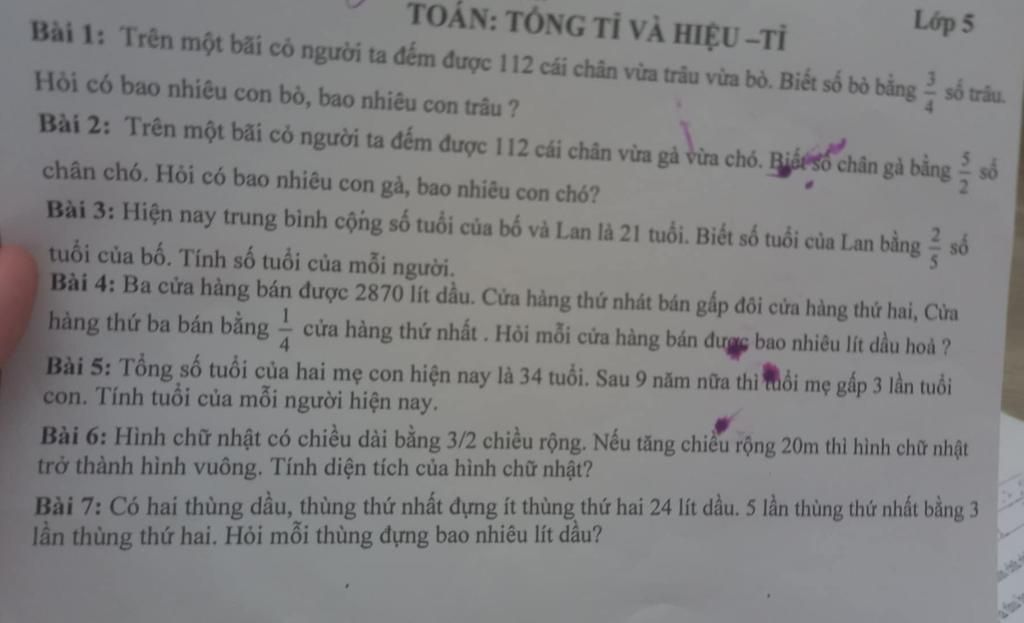 TOÁN: TỔNG TỈ VÀ HIỆU –TỈ
Lớp 5
Bài 1: Trên một bãi cỏ người ta đếm được 112 cái chân vừa trâu vừa bò. Biết số bò bằng 3/4 số trâu.
Hỏi có bao nhiêu con bò, bao nhiêu con trâu ?
Bài 2: Trên một bãi cỏ người ta đếm được 112 cái chân vừa gà vừa chó. Biết số chân gà bằng 5/2 số
chân chó. Hỏi có bao nhiêu con gà, bao nhiêu con chó?
Bài 3: Hiện nay trung bình cộng số tuổi của bố và Lan là 21 tuổi. Biết số tuổi của Lan bằng 2/5 số
tuổi của bố. Tính số tuổi của mỗi người.
Bài 4: Ba cửa hàng bán được 2870 lít dầu. Cửa hàng thứ nhát bán gấp đôi cửa hàng thứ hai, Cửa
hàng thứ ba bán bằng 1/4 cửa hàng thứ nhất . Hỏi mỗi cửa hàng bán được bao nhiêu lít dầu hoả ?
Bài 5: Tổng số tuổi của hai mẹ con hiện nay là 34 tuổi. Sau 9 năm nữa thì tuổi mẹ gấp 3 lần tuổi
con. Tính tuổi của mỗi người hiện nay.
Bài 6: Hình chữ nhật có chiều dài bằng 3/2 chiều rộng. Nếu tăng chiều rộng 20m thì hình chữ nhật
trở thành hình vuông. Tính diện tích của hình chữ nhật?
Bài 7: Có hai thùng dầu, thùng thứ nhất đựng ít thùng thứ hai 24 lít dầu. 5 lần thùng thứ nhất bằng 3
lần thùng thứ hai. Hỏi mỗi thùng đựng bao nhiêu lít dầu?